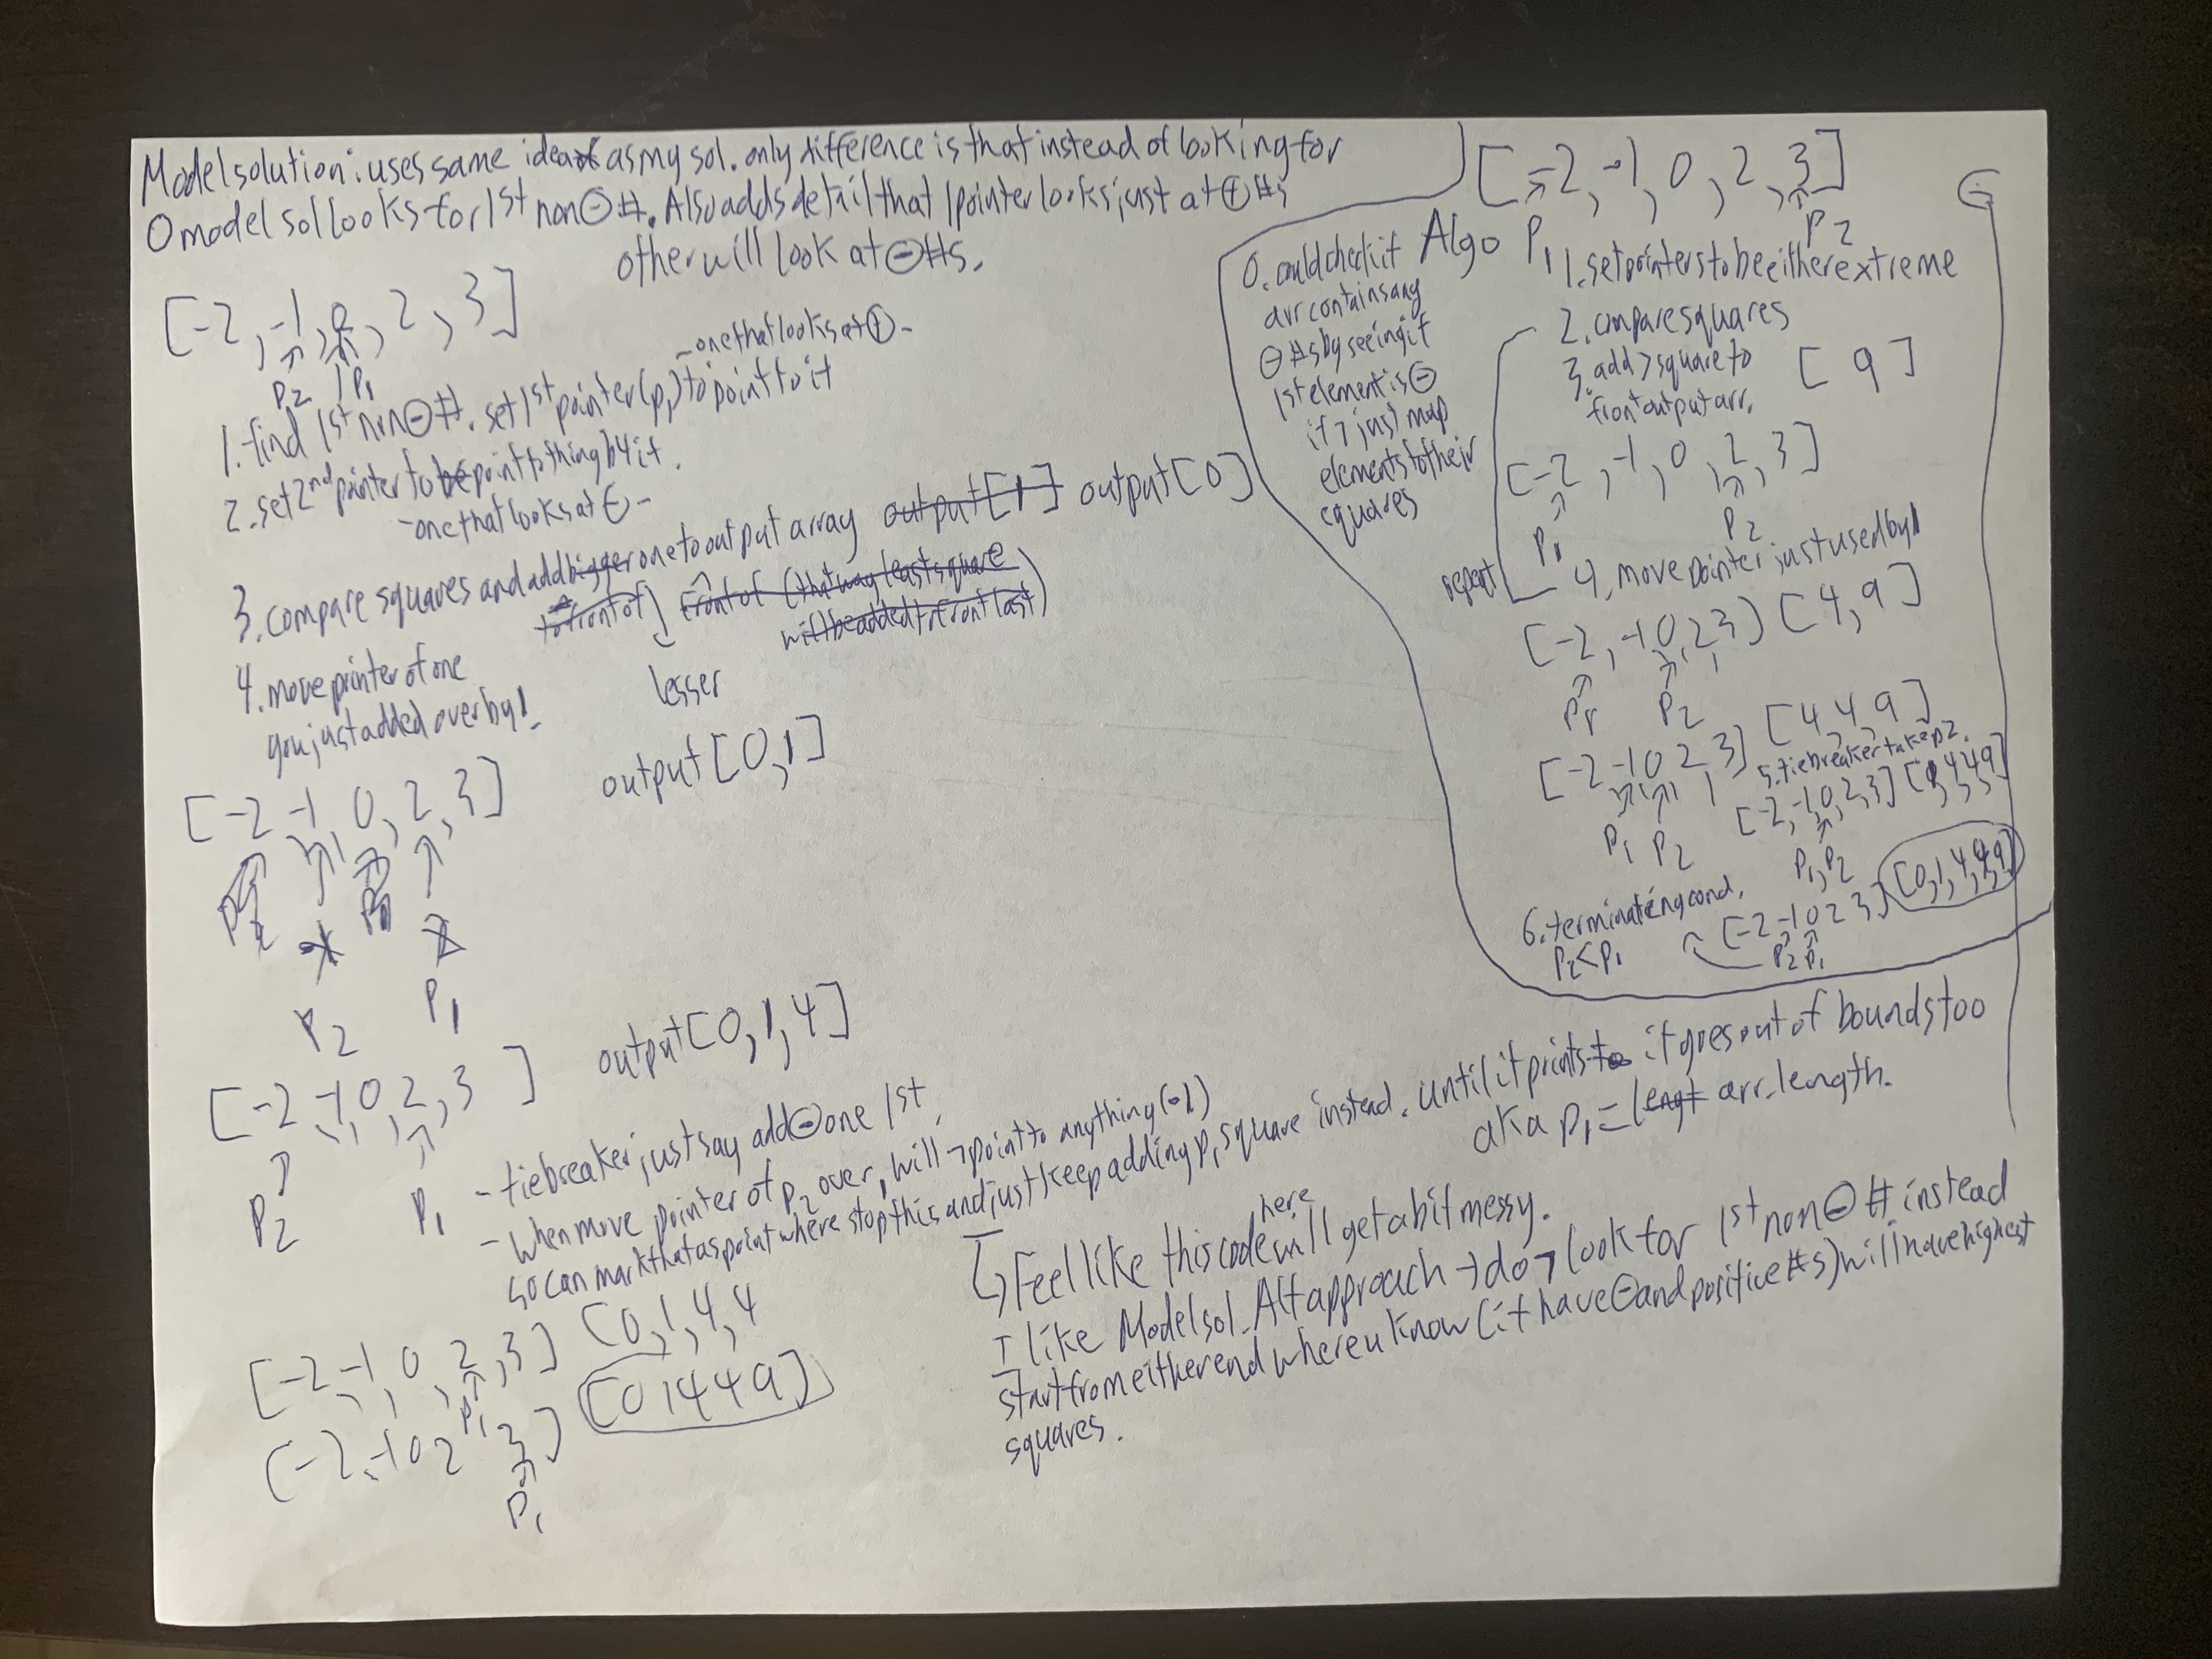 Model solution: uses same idea as my sol. only difference is that instead of looking for
0 model sol looks for 1st non ⊖ #. Also adds detail that 1 pointer looks just at ⊕ #s
other will look at ⊖ #s.
[-2, -1, 0, 2, 3]
P2 P1
- one that looks at ⊕ -
1. find 1st non ⊖ #. set 1st pointer (p1) to point to it
2. set 2nd pointer to be point to thing b4 it.
- one that looks at ⊖ -
3. compare squares and add bigger one to output array output[1] output[0]
to front of front of (that way least square
will be added to front last)
lesser
4. move pointer of one
you just added over by 1.
output[0,1]
[-2 -1, 0, 2, 3]
P2 P1
output[0,1,4]
[-2 -1, 0, 2, 3]
P2 P1
- tiebreaker just say add ⊖ one 1st.
- When move pointer of p2 over, will ¬ point to anything (-1)
so can mark that as point where stop this and just keep adding p1 square instead. until it points to it goes out of bounds too
aka p1 = lengt arr.length.
[-2, -1, 0, 2, 3] [0, 1, 4, 4
P1
[-2, -1 0 2 3] [0 1 4 4 9]
P1
↳ Feel like this code here will get a bit messy.
I like Model sol. Alt approach → do ¬ look for 1st non ⊖ # instead
start from either end where u know (if have ⊖ and positive #s) will have highest
squares.
[-2, -1, 0, 2, 3]
P1 P2
Algo
0. could check if
arr contains any
⊖ #s by seeing if
1st element is ⊖
if ¬ just map
elements to their
squares
1. set pointers to be either extreme
2. compare squares
3. add > square to
front output arr.
[9]
[-2, -1, 0, 2, 3]
P1 P2
repeat
4. move pointer just used by 1
[-2, -1 0, 2 3] [4, 9]
P1 P2
[-2 -1 0 2, 3] [4, 4, 9]
P1 P2
5. tiebreaker take p2.
[-2, -1, 0, 2, 3] [1, 4, 4, 9]
P1, P2
6. terminating cond.
P2 < P1
[-2 -1 0 2 3] [0, 1, 4, 4, 9]
P2 P1